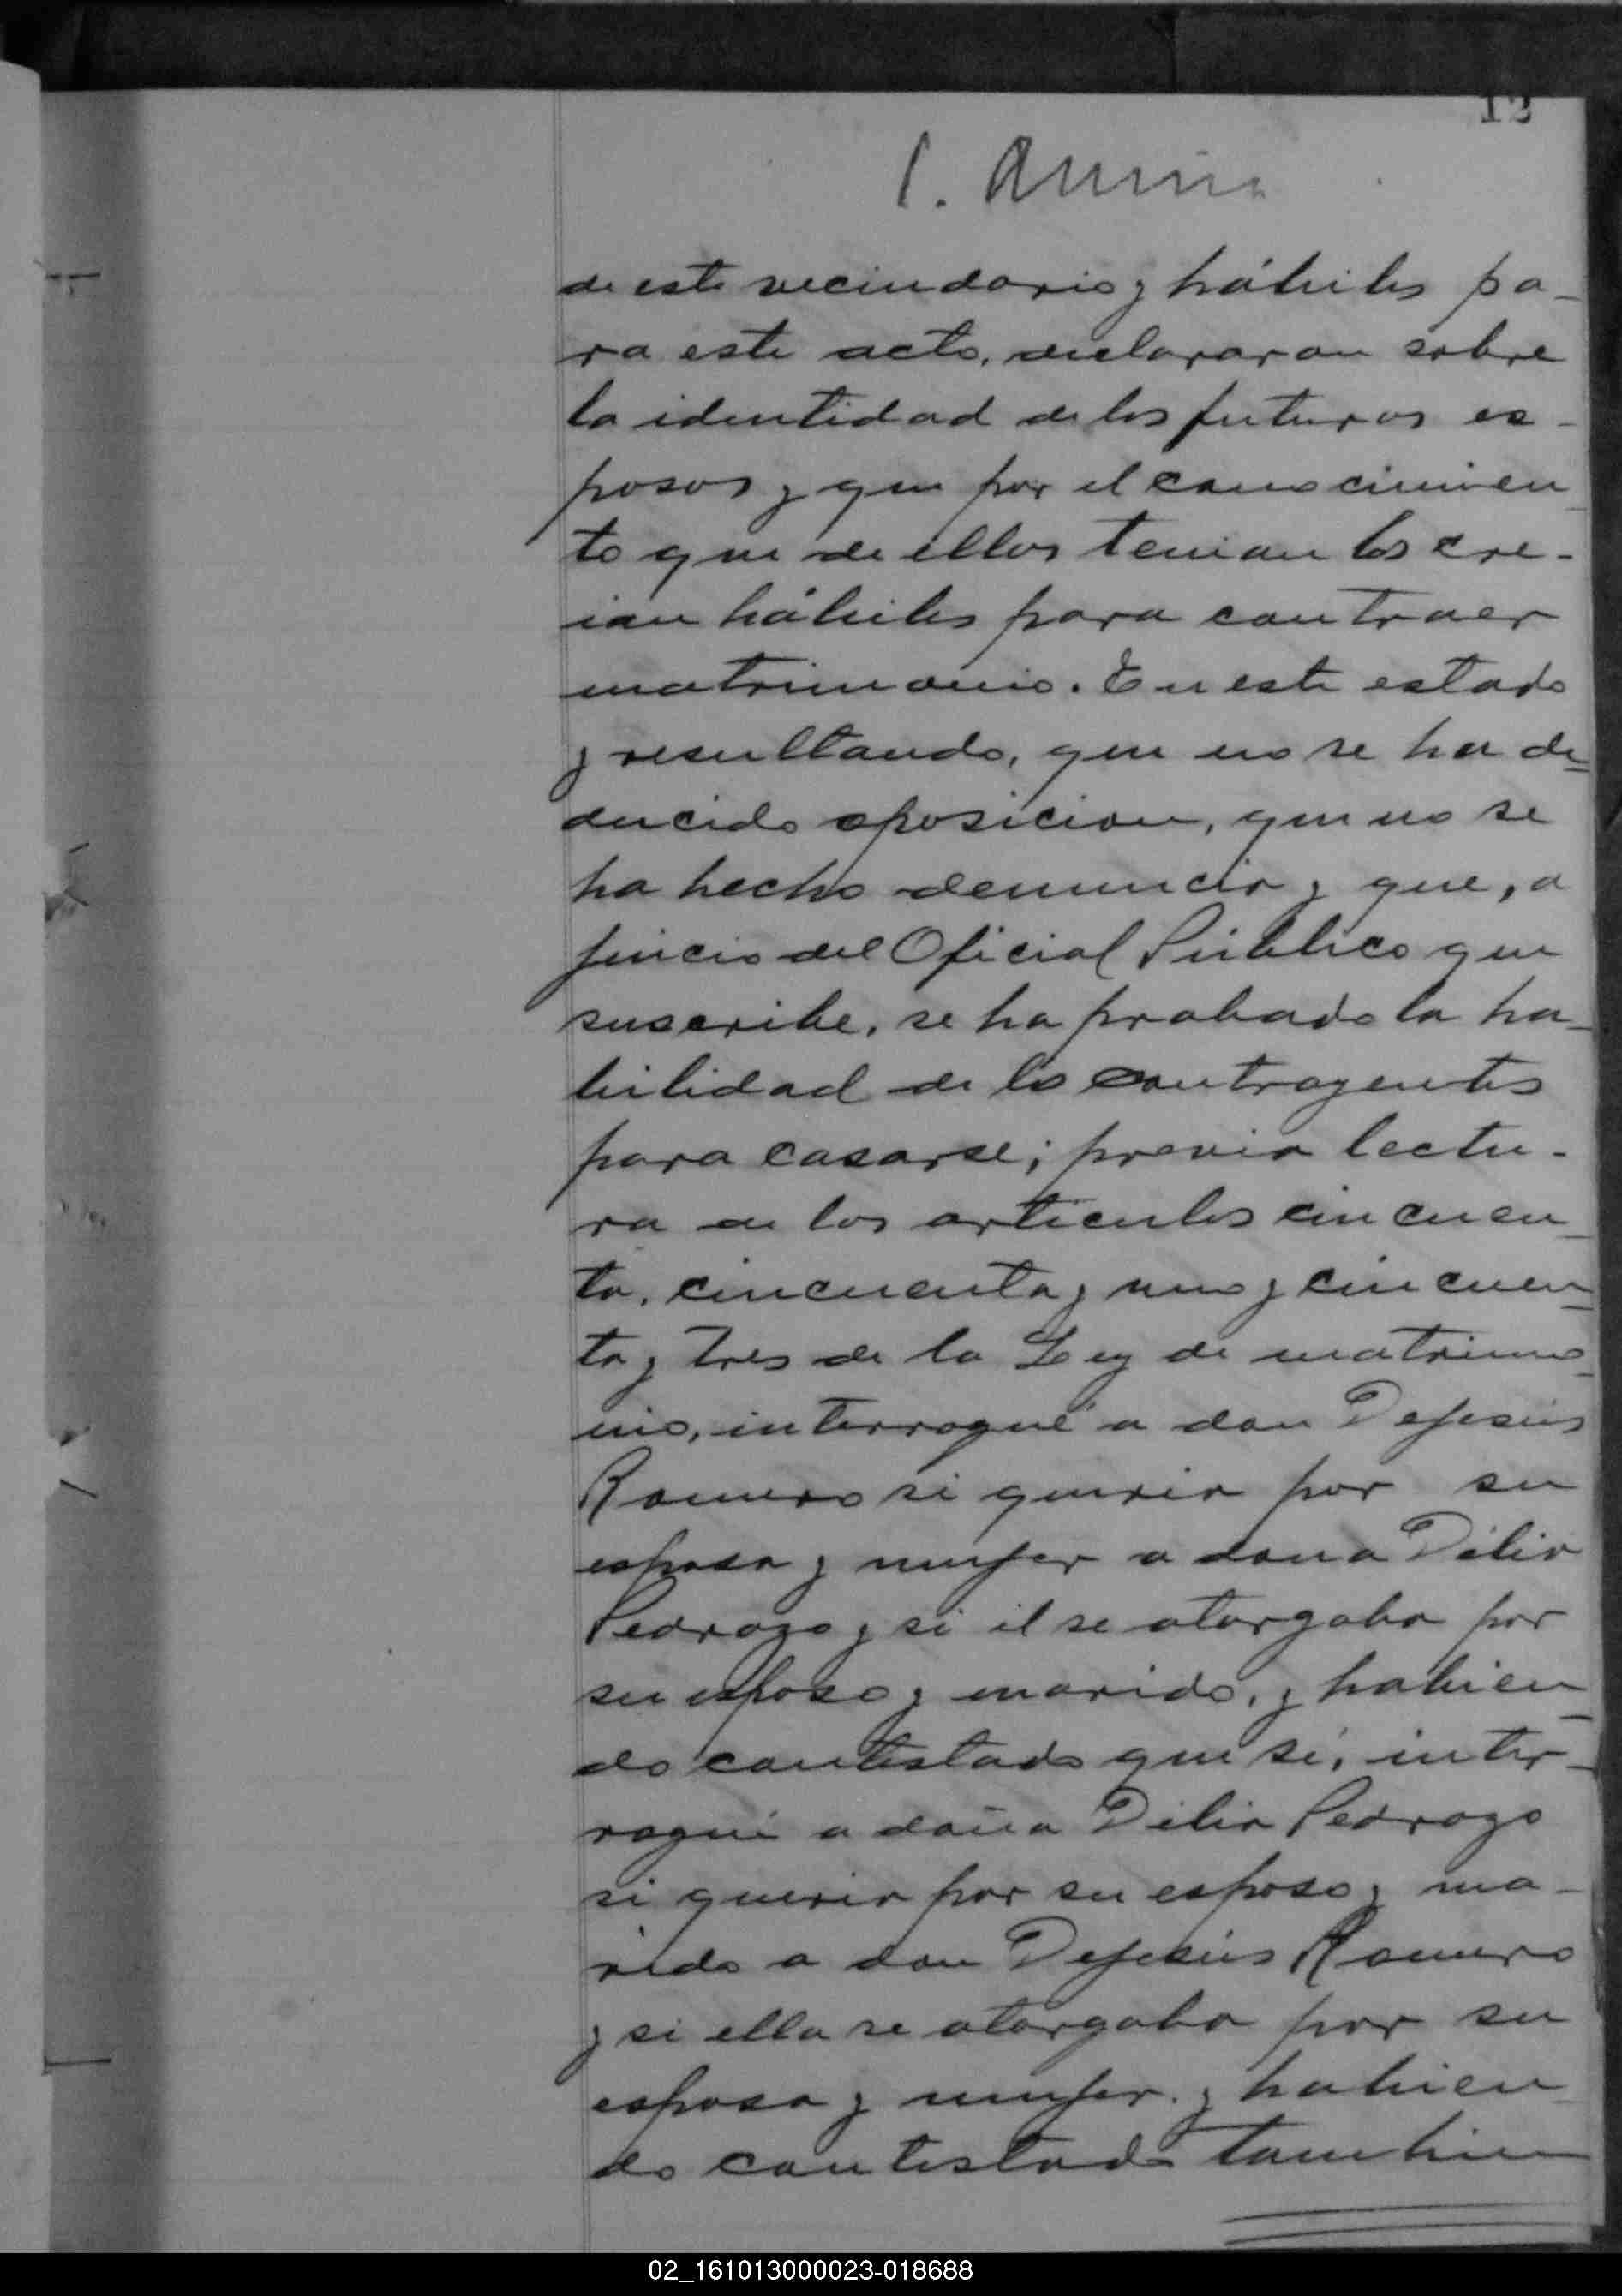 12
de este vecindario y hábiles pa-
ra este acto, declararon sobre
la identidad de los futuros es-
posos y que por el conocimien
to que de ellos tenian los cre-
ian hábiles para contraer
matrimonio. En este estado
y resultando, que no se ha de
ducido oposicion, que no se
ha hecho denuncia y que, a
juicio del Oficial Público que
suscribe, se ha probado la ha-
bilidad de los contrayentes
para casarse; previa lectu-
ra de los articulos cincuen
ta, cincuenta y uno y cincuen
ta y tres de la Ley de matrimo
nio, interrogué a don Dejesús
Romero si queria por su
esposa y mujer a dona Délia
Pedrozo y si él se otorgaba por
su esposo y marido, y habien
do contestado que sí, inter-
rogué a doña Delia Pedrozo
si queria por su esposo y ma-
rido a don Dejesús Romero
y si ella se otorgaba por su
esposa y mujer. y habien
do contestado tambien
02_161013000023-018688